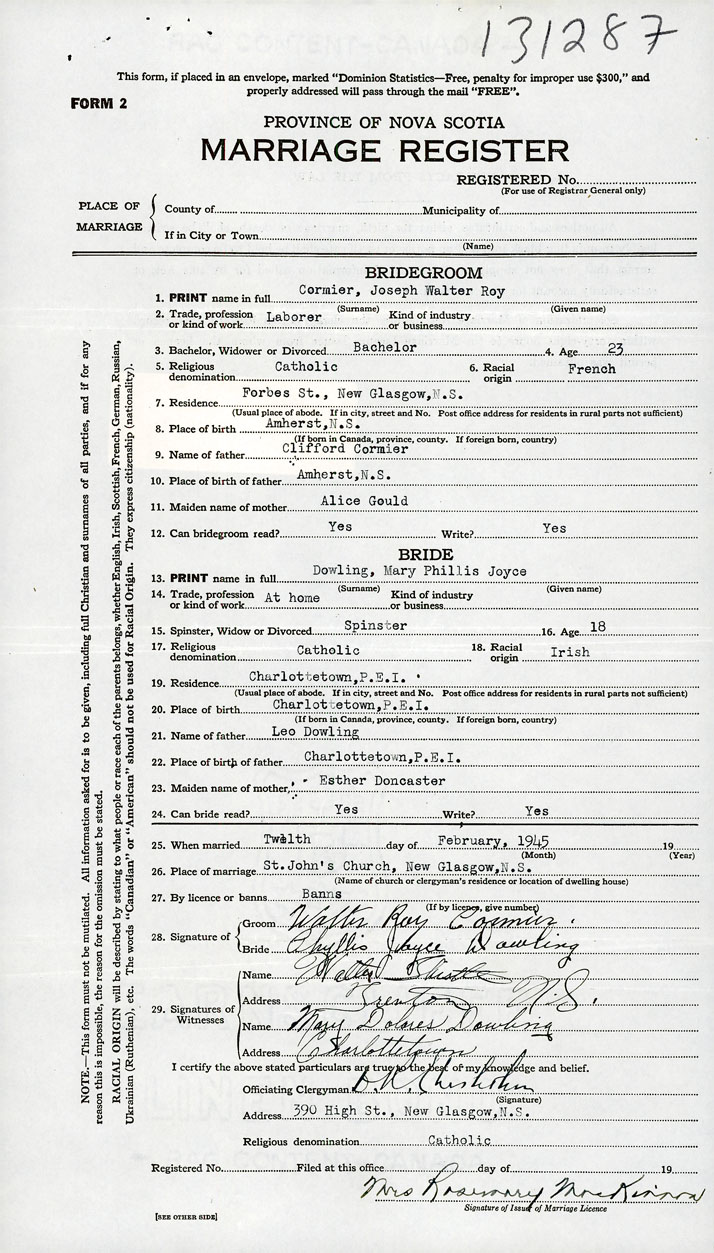 131287
This form, if placed in an envelope, marked "Dominion Statistics—Free, penalty for improper use $300," and
properly addressed will pass through the mail "FREE".
FORM 2
PROVINCE OF NOVA SCOTIA
MARRIAGE REGISTER
REGISTERED No.
(For use of Registrar General only)
PLACE OF MARRIAGE
County of Municipality of
If in City or Town
(Name)
BRIDEGROOM
1. PRINT name in full Cormier, Joseph Walter Roy
(Surname) (Given name)
2. Trade, profession or kind of work Laborer Kind of industry or business
3. Bachelor, Widower or Divorced Bachelor 4. Age 23
5. Religious denomination Catholic 6. Racial origin French
7. Residence Forbes St., New Glasgow,N.S.
(Usual place of abode. If in city, street and No. Post office address for residents in rural parts not sufficient)
8. Place of birth Amherst,N.S.
(If born in Canada, province, county. If foreign born, country)
9. Name of father Clifford Cormier
10. Place of birth of father Amherst,N.S.
11. Maiden name of mother Alice Gould
12. Can bridegroom read? Yes Write? Yes
BRIDE
13. PRINT name in full Dowling, Mary Phillis Joyce
(Surname) (Given name)
14. Trade, profession or kind of work At home Kind of industry or business
15. Spinster, Widow or Divorced Spinster 16. Age 18
17. Religious denomination Catholic 18. Racial origin Irish
19. Residence Charlottetown,P.E.I.
(Usual place of abode. If in city, street and No. Post office address for residents in rural parts not sufficient)
20. Place of birth Charlottetown,P.E.I.
(If born in Canada, province, county. If foreign born, country)
21. Name of father Leo Dowling
22. Place of birth of father Charlottetown,P.E.I.
23. Maiden name of mother, Esther Doncaster
24. Can bride read? Yes Write? Yes
25. When married Twelth day of February, 1945 19
(Month) (Year)
26. Place of marriage St.John's Church, New Glasgow,N.S.
(Name of church or clergyman's residence or location of dwelling house)
27. By licence or banns Banns
(If by licence, give number)
28. Signature of Groom Walter Roy Cormier.
Bride Phyllis Joyce Dowling
29. Signatures of Witnesses
Name Walter
Address Trenton N.S.
Name Mary Dolores Dowling
Address Charlottetown
I certify the above stated particulars are true to the best of my knowledge and belief.
Officiating Clergyman Chisholm
(Signature)
Address 390 High St., New Glasgow,N.S.
Religious denomination Catholic
Registered No. Filed at this office day of 19
Mrs Rosemary MacKinnon
Signature of Issuer of Marriage Licence
[SEE OTHER SIDE]
NOTE.—This form must not be mutilated. All information asked for is to be given, including full Christian and surnames of all parties, and if for any
reason this is impossible, the reason for the omission must be stated.
RACIAL ORIGIN will be described by stating to what people or race each of the parents belongs, whether English, Irish, Scottish, French, German, Russian,
Ukrainian (Ruthenian), etc. The words "Canadian" or "American" should not be used for Racial Origin. They express citizenship (nationality).